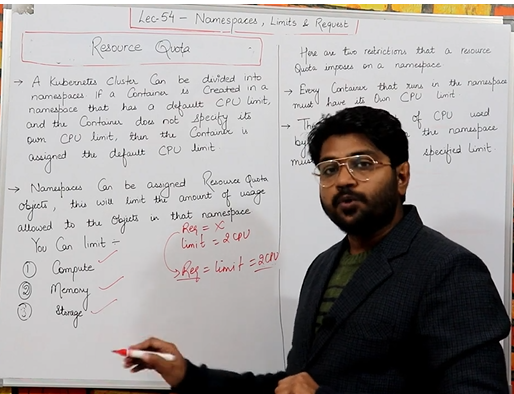 Lec-54 - Namespaces, Limits & Request
Resource Quota
→ A Kubernetes Cluster Can be divided into
namespaces. If a Container is Created in a
namespace that has a default CPU limit,
and the Container does not specify its
own CPU limit, then the Container is
assigned the default CPU limit
→ Namespaces Can be assigned Resource Quota
objects, this will limit the amount of usage
allowed to the objects in that namespace
You Can limit :-
① Compute ✓
② Memory ✓
③ Storage ✓
Req = X
limit = 2 CPU
→ Req = limit = 2 CPU
Here are two restrictions that a resource
Quota imposes on a namespace
→ Every Container that runs in the namespace
must have its Own CPU limit
→ of CPU used
by the namespace
must specified limit.